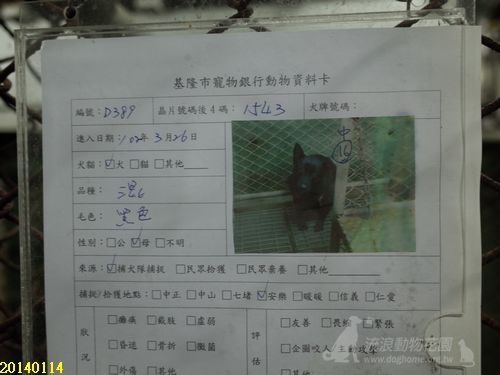 基隆市寵物銀行動物資料卡
編號：D389 晶片號碼後4碼：1543 犬牌號碼：
進入日期：102年3月26日
犬貓：☑犬 □貓 □其他
品種：混
毛色：黑色
性別：□公 ☑母 □不明
來源：☑捕犬隊捕捉 □民眾拾獲 □民眾棄養 □其他
捕捉/拾獲地點：□中正 □中山 □七堵 ☑安樂 □暖暖 □信義 □仁愛
狀況
□癱瘓 □截肢 □虛弱
□昏迷 □骨折 □黴菌
□外傷 □其他
評估
□友善 □長蝨 □緊張
□企圖咬人 主動攻擊
□其他
中
流浪動物花園
www.doghome.org.tw
20140114